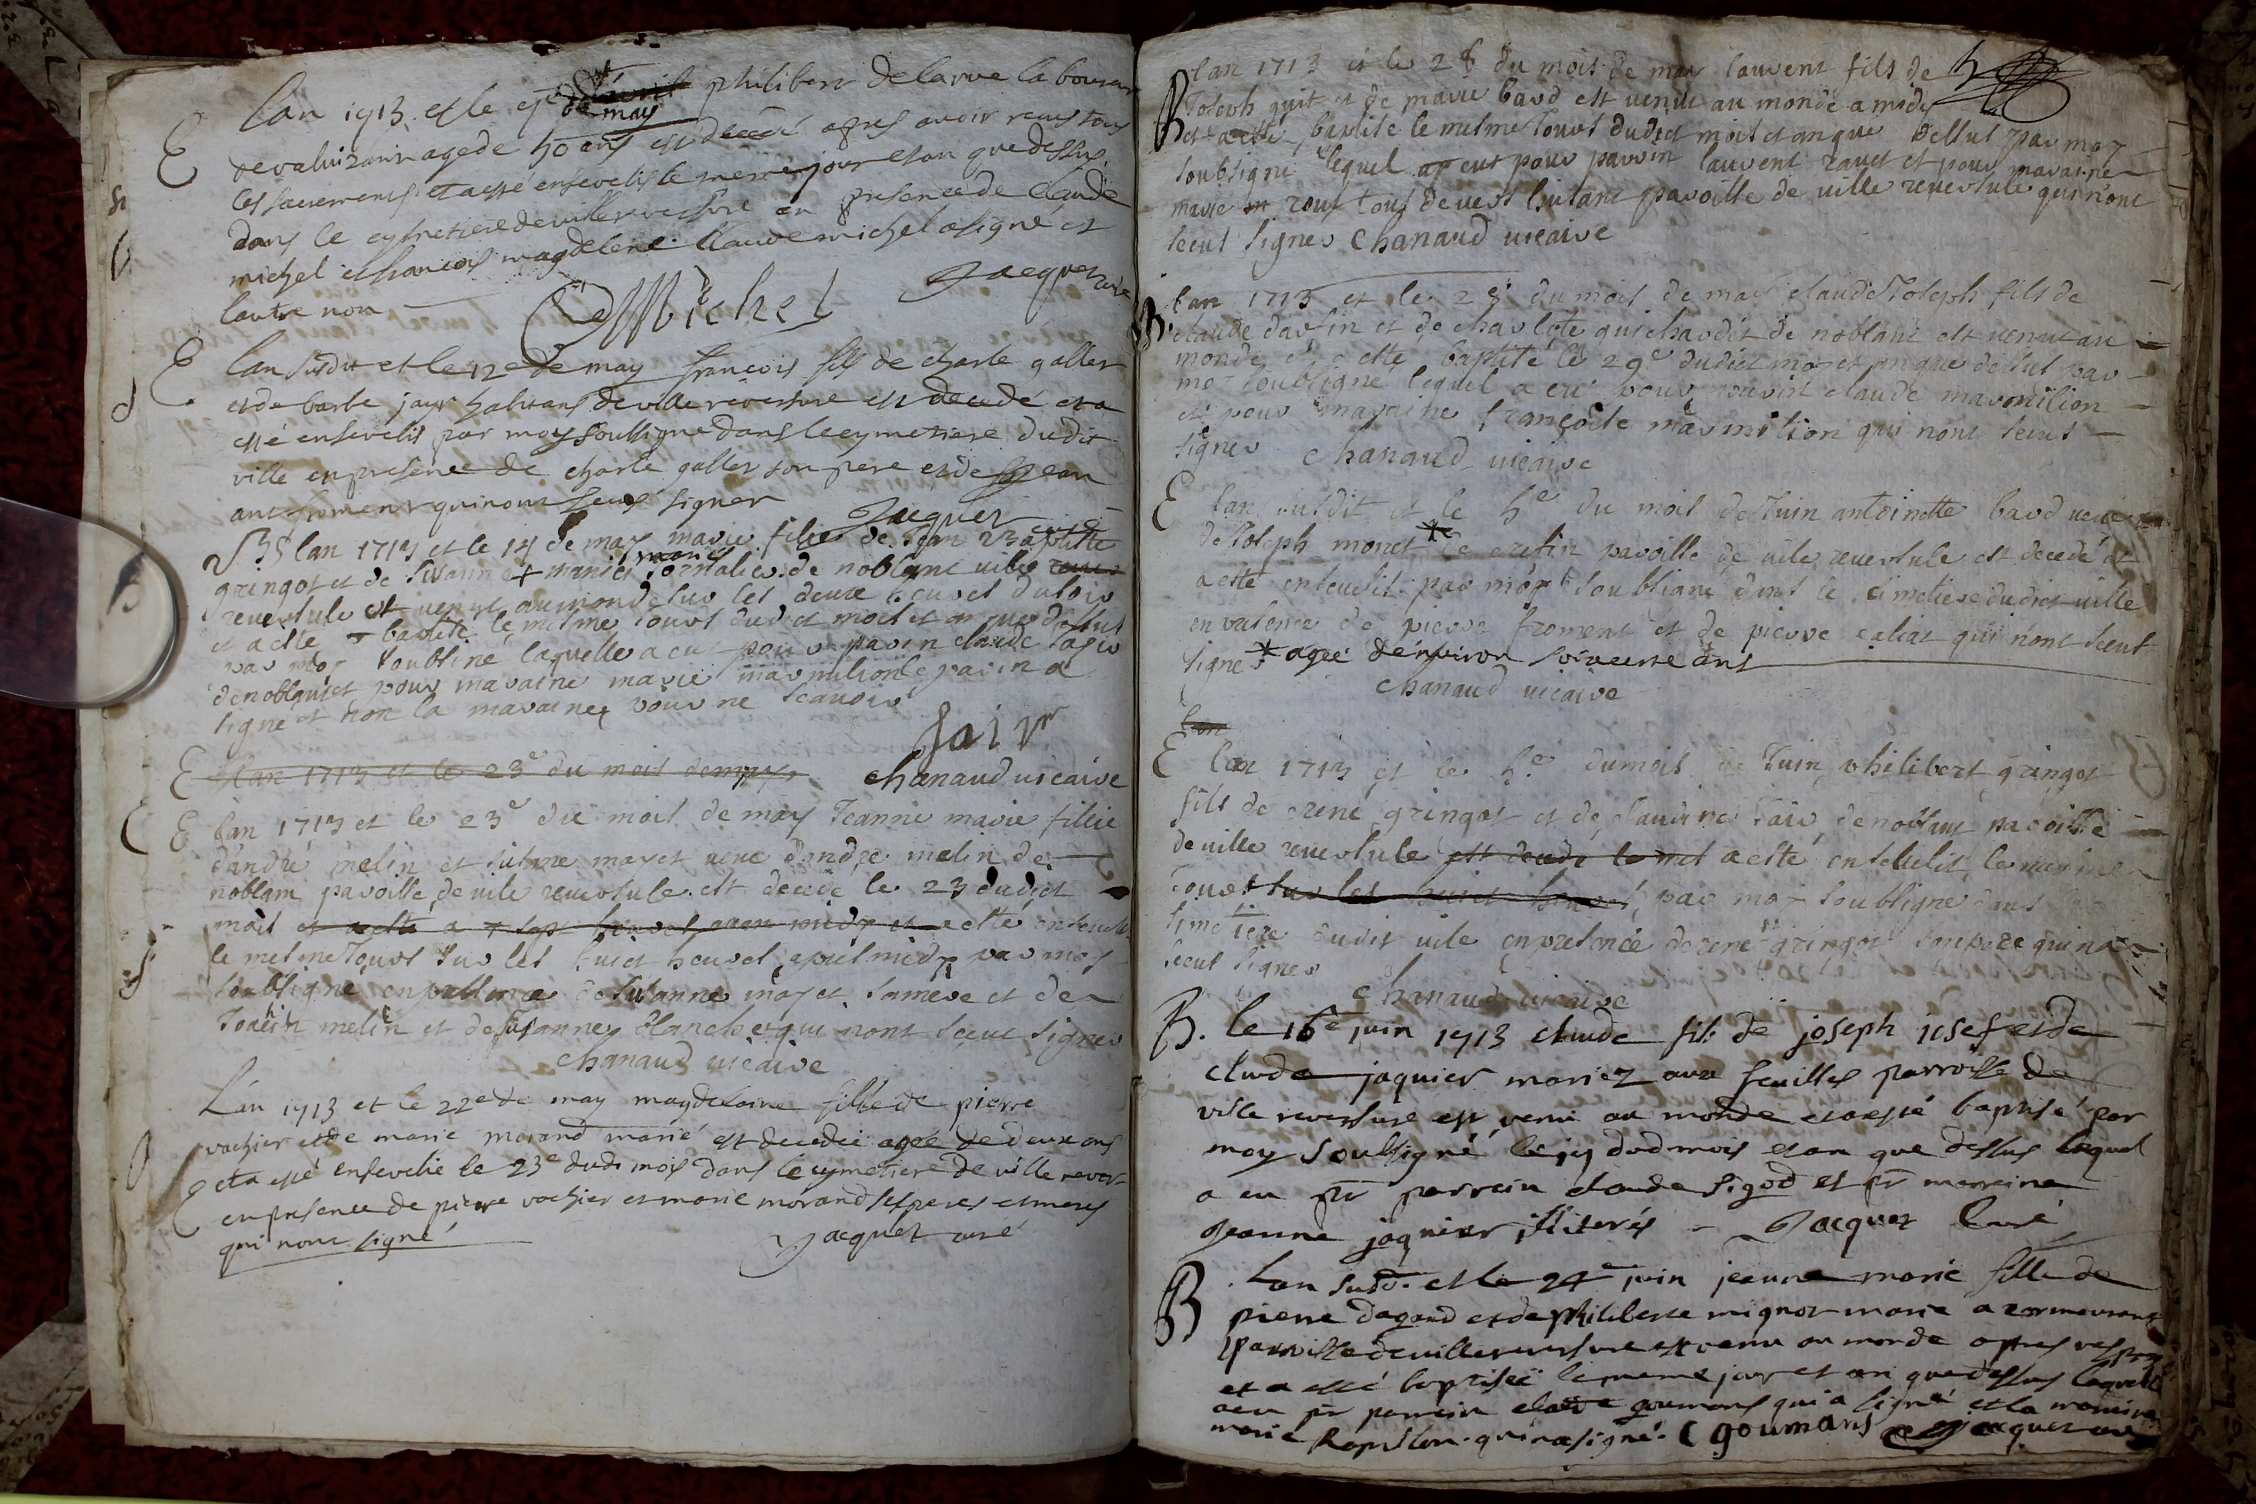 E
Lan 1713 et le 5e davril philibert Delarue labourer
de may
devaluizann agé de 50 ans est decedé apres avoir receu tous
les sacrements et a esté ensevelis le meme jour et an que dessus
dans le cymetiere de ville reversure en presence de Claude
michel et francois magdelene. Claude michel a signé et
lautre non
C Michel Jacquet curé
E
Lan susdit et le 12e de may françois fils de charle gallet
et de barbe jayr habitans de ville reversure est decedé et a
esté ensevelis par moy soussigné dans le cymetiere dudit
ville en presence de charle galler son pere et de Jean
ant froment qui nont sceus signer
Jacquet curé
B lan 1713 et le 14 de may marie fillie de Jean Baptiste
gringot et de Susanne mariés de noblant ville
reversule est venue au monde sur les deux heures du soir
et a esté baptisé le mesme jours dudict mois et an que dessus
par moy soubsiné laquelle a eu pour parin claude Jaiv
denoblant et pour maraine marie marmilion le parin a
signé et non la maraine pour ne scavoir
Jaiv
E lan 1713 et le 23e du mois de may chanaud vicaire
E lan 1713 et le 23e du mois de may Jeanne marie fillie
dandré melin et susane mayet dandre melin de
noblam paroisse de vile reversule est decedé le 23 dudict
mois et a esté a sept heures avan midy et a esté enseveli
le mesme Jours sur les huict heures apres midy par moy
soubsigné en presence de Susanne mayet sa mere et de
Joachin melin et de Susanne blanche qui nont sceut signer
chanaud vicaire
Lan 1713 et le 22e de may magdelaine fille de pierre
vachier et de marie morand marié est decedée agée de deux ans
et a esté ensevelie le 23e dudt mois dans le cymetiere de ville rever
E en presence de pierre vachier et marie morand ses peres et meres
qui nont signé Jacquet curé
B lan 1713 et le 28 du mois de may laurent fils de
Joseph guit et de marie bard est venut au monde a midy
et a esté baptise le mesme Jours dudict mois et an que dessus par moy
soubsigne lequel a eut pour parin laurent ravet et pour maraine
marie roux tous deux habitans paroisse de ville reversule qui nont
sceut signer Chanaud vicaire
lan 1713 et le 28 du mois de may claude Joseph fils de
B. claude darfin et de charlote guichardit de noblant est venut au
monde et a esté baptisé le 29e dudict moy et an que dessus par
moy soubsigné lequel a eu pour parin claude marmilion
et pour maraine françoise marmilion qui nont sceut
signer chanaud vicaire
E lan susdit et le 5e du mois de Juin antoinette bard
de Joseph monet * de crefin paroisse de vile reversule est decedé et
a esté ensevelit par moy soubsigné dans le cimetiere dudict ville
en presence de pierre froment et de pierre caliat qui nont sceut
signer * ageé denviron soixcente ans
chanaud vicaire
lan
E lan 1713 et le 5e du mois de Juin philibert gringot
fils de rené gringot et de claudine Jaiv de noblant paroisse
de ville reversule est decede le mes a esté ensevelit le mesme
Jours sur les huict heures par moy soubsigne dans le
simetiere dudit vile en presence de rene gringot son pere qui na
sceut signer
Chanaud vicaire
B. le 16e juin 1713 claude fils de joseph josef et de
clauda jaquier mariez aux feuilles parroisse de
ville reversure est venu au monde et a esté baptisé par
moy soussigné le 17 dud mois et an que dessus lequel
a eu pr parrein claude sigod et pr marreine
jeanne jaquier illiterés - Jacquet Curé
B
Lan susd. et le 24e juin jeanne marie fille de
pierre dagand et de philiberte mignot marié a cormevrant
parroisse de ville reversure est venu au monde apres vespres
et a esté baptisée le meme jour et an que dessus laquelle
a eu pr parrein claude goumans qui a signé et la marreine
marie Rapillon qui na signé. C goumans Jacquet curé